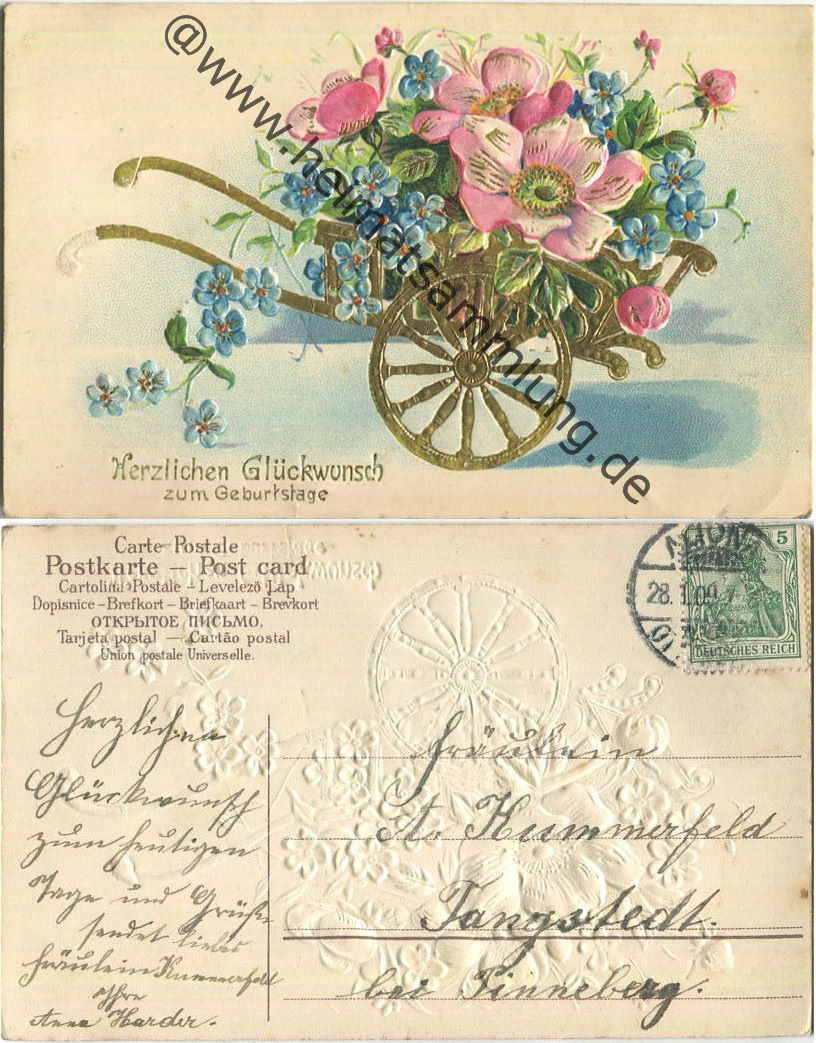 @www.heimatsammlung.de
Herzlichen Glückwunsch
zum Geburtstage
Carte Postale
Postkarte — Post card
Cartolina Postale – Levelező Lap
Dopisnice – Brefkort – Briefkaart – Brevkort
ОТКРЫТОЕ ПИСЬМО.
Tarjeta postal — Cartão postal
Union postale Universelle.
28. 1.09. 7
5
DEUTSCHES REICH
Herzlichen
Glückwunsch
zum heutigen
Tage und Grüße
sendet liebes
Fräulein Kummerfeld
Ihre
Anna Harder.
Fräulein
A. Kummerfeld
Tangstedt.
bei Pinneberg.